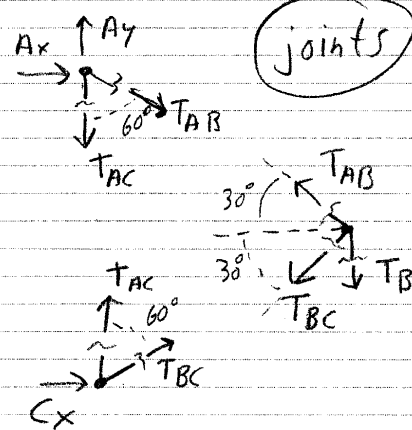 Ay
Ax
joints
60°
TAB
TAC
TAB
30°
30°
TB
TBC
TAC
60°
TBC
Cx